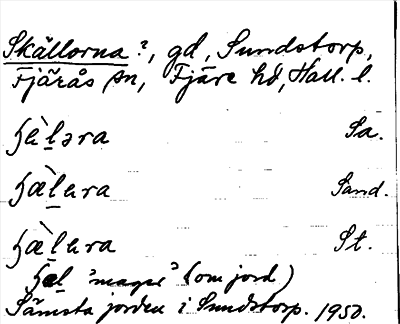 Skällorna?, gd, Sundstorp,
Fjärås sn, Fjäre hd, Hall. l.
ɧæ̀lǝra Sa.
ɧæ̀lura Sand.
ɧæ̀lura St.
ɧæl "mager" (om jord)
Sämsta jorden i Sundstorp. 1950.